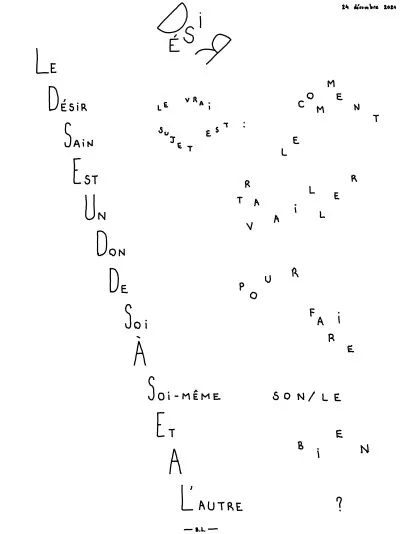 24 décembre 2024
DÉSIR
LE
DÉSIR
SAIN
EST
UN
DON
DE
SOI
À
SOI-MÊME
ET
A
L'AUTRE
LE VRAI
SUJET EST :
COMMENT
LE
TRAVAILLER
POUR
FAIRE
SON/LE
BIEN
?
— B.L. —